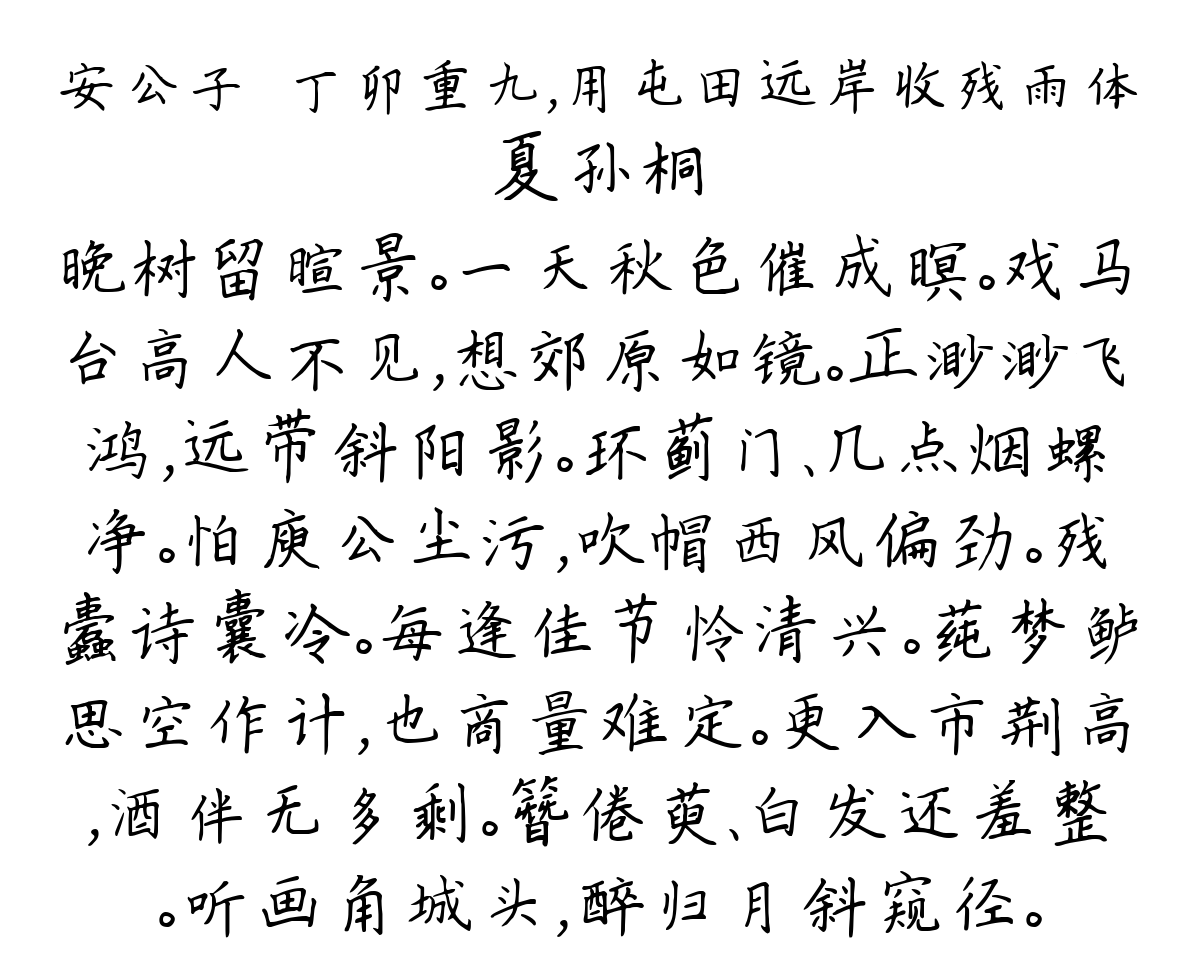 安公子 丁卯重九,用屯田远岸收残雨体
夏孙桐
晚树留暄景。一天秋色催成暝。戏马
台高人不见,想郊原如镜。正渺渺飞
鸿,远带斜阳影。环蓟门、几点烟螺
净。怕庾公尘污,吹帽西风偏劲。残
蠹诗囊冷。每逢佳节怜清兴。莼梦鲈
思空作计,也商量难定。更入市荆高
,酒伴无多剩。簪倦萸、白发还羞整
。听画角城头,醉归月斜窥径。